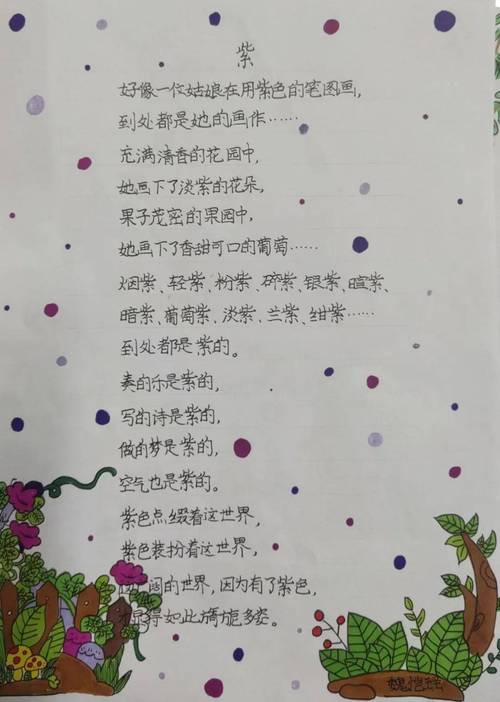 紫
好像一位姑娘在用紫色的笔图画,
到处都是她的画作……
充满清香的花园中,
她画下了淡紫的花朵,
果子茂密的果园中,
她画下了香甜可口的葡萄……
烟紫、轻紫、粉紫、碎紫、银紫、暄紫、
暗紫、葡萄紫、淡紫、兰紫、绀紫……
到处都是紫的。
奏的乐是紫的,
写的诗是紫的,
做的梦是紫的,
空气也是紫的。
紫色点缀着这世界,
紫色装扮着这世界,
的世界,因为有了紫色,
得如此旖旎多姿。
魏恺